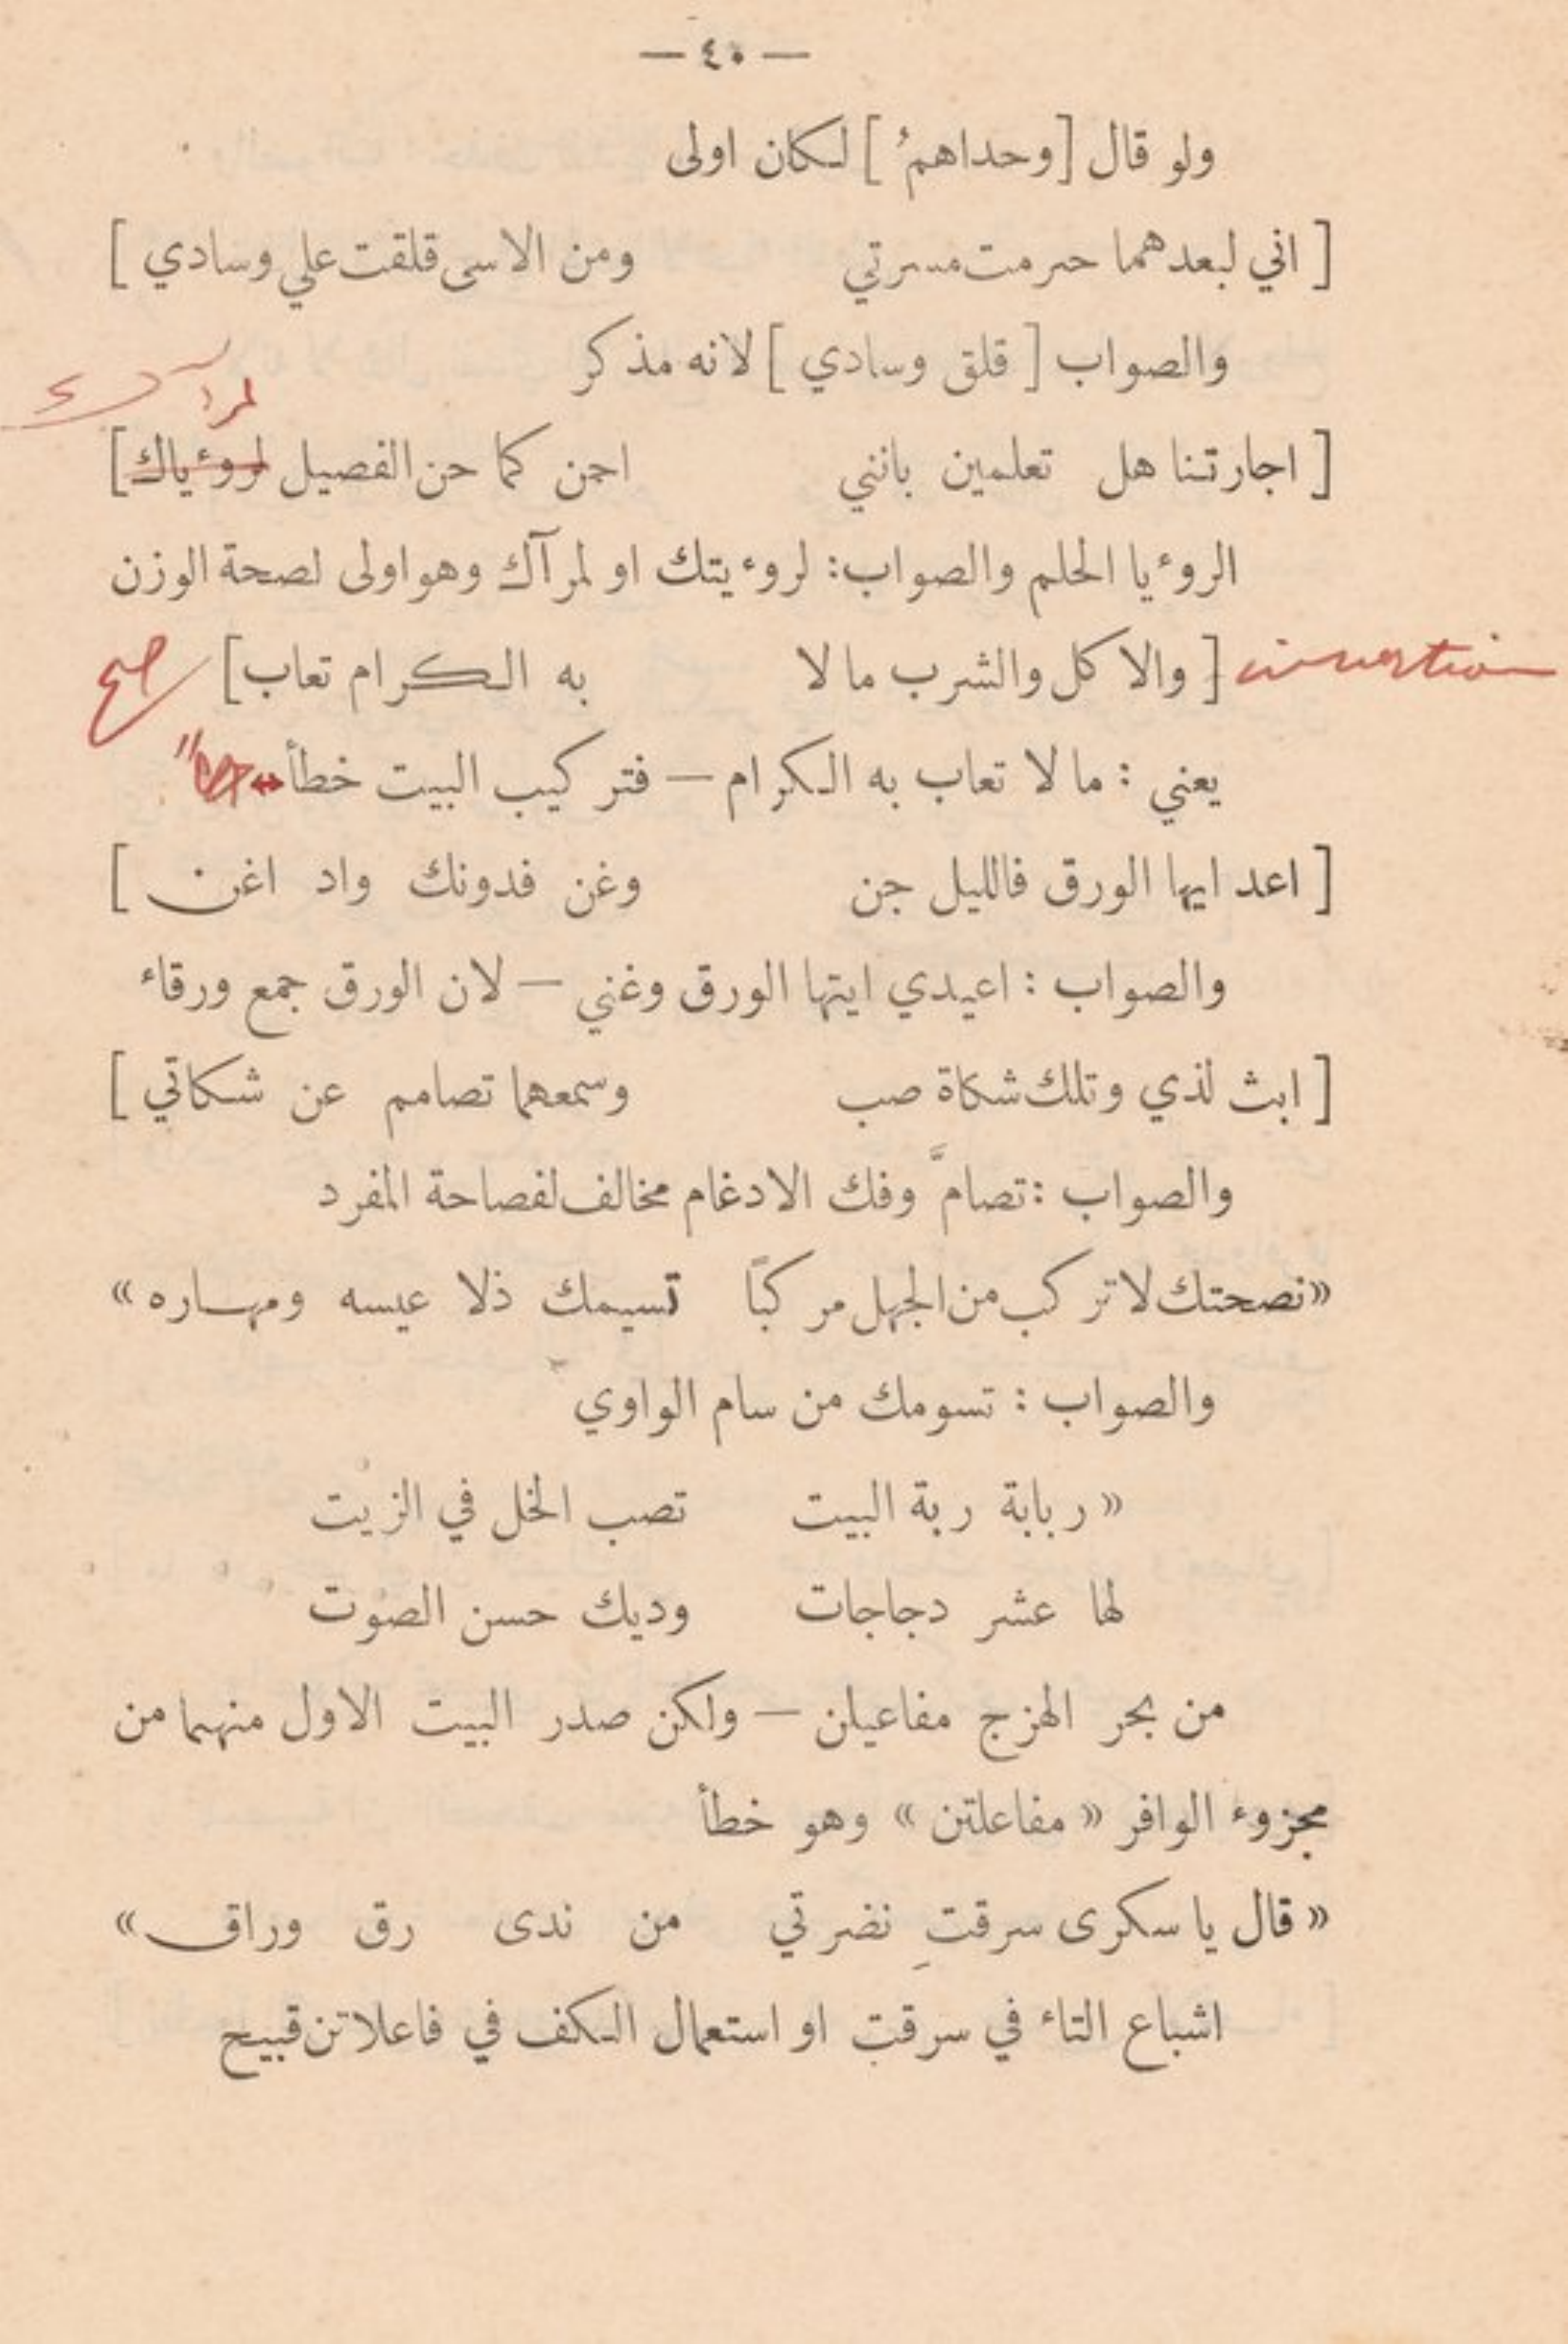 — ٤٠ —
ولو قال [ وحداهمُ ] لكان اولى
[ اني لبعدهما حرمت مسرتي ومن الاسى قلقت علي وسادي ]
والصواب [ قلق وسادي ] لانه مذكر
لمرآك
[ اجارتنا هل تعلمين بانني احن كما حن الفصيل لروءياك ]
الروءيا الحلم والصواب: لروءيتك او لمرآك وهو اولى لصحة الوزن
insertion [ والاكل والشرب مالا به الكرام تعاب ] صح
يعني : مالا تعاب به الكرام — فتركيب البيت خطأ
[ اعد ايها الورق فالليل جن وغن فدونك واد اغن ]
والصواب : اعيدي ايتها الورق وغني — لان الورق جمع ورقاء
[ ابث لذي وتلك شكاة صب وسمعهما تصامم عن شكاتي ]
والصواب : تصامَّ وفك الادغام مخالف لفصاحة المفرد
«نصحتك لاتركب من الجهل مركبًا تسيمك ذلا عيسه ومهاره»
والصواب : تسومك من سام الواوي
« ربابة ربة البيت تصب الخل في الزيت
لها عشر دجاجات وديك حسن الصوت
من بحر الهزج مفاعيلن — ولكن صدر البيت الاول منهما من
مجزوء الوافر « مفاعلتن » وهو خطأ
« قال ياسكرى سرقتِ نضرتي من ندى رق وراق »
اشباع التاء في سرقتِ او استعمال الكف في فاعلاتن قبيح